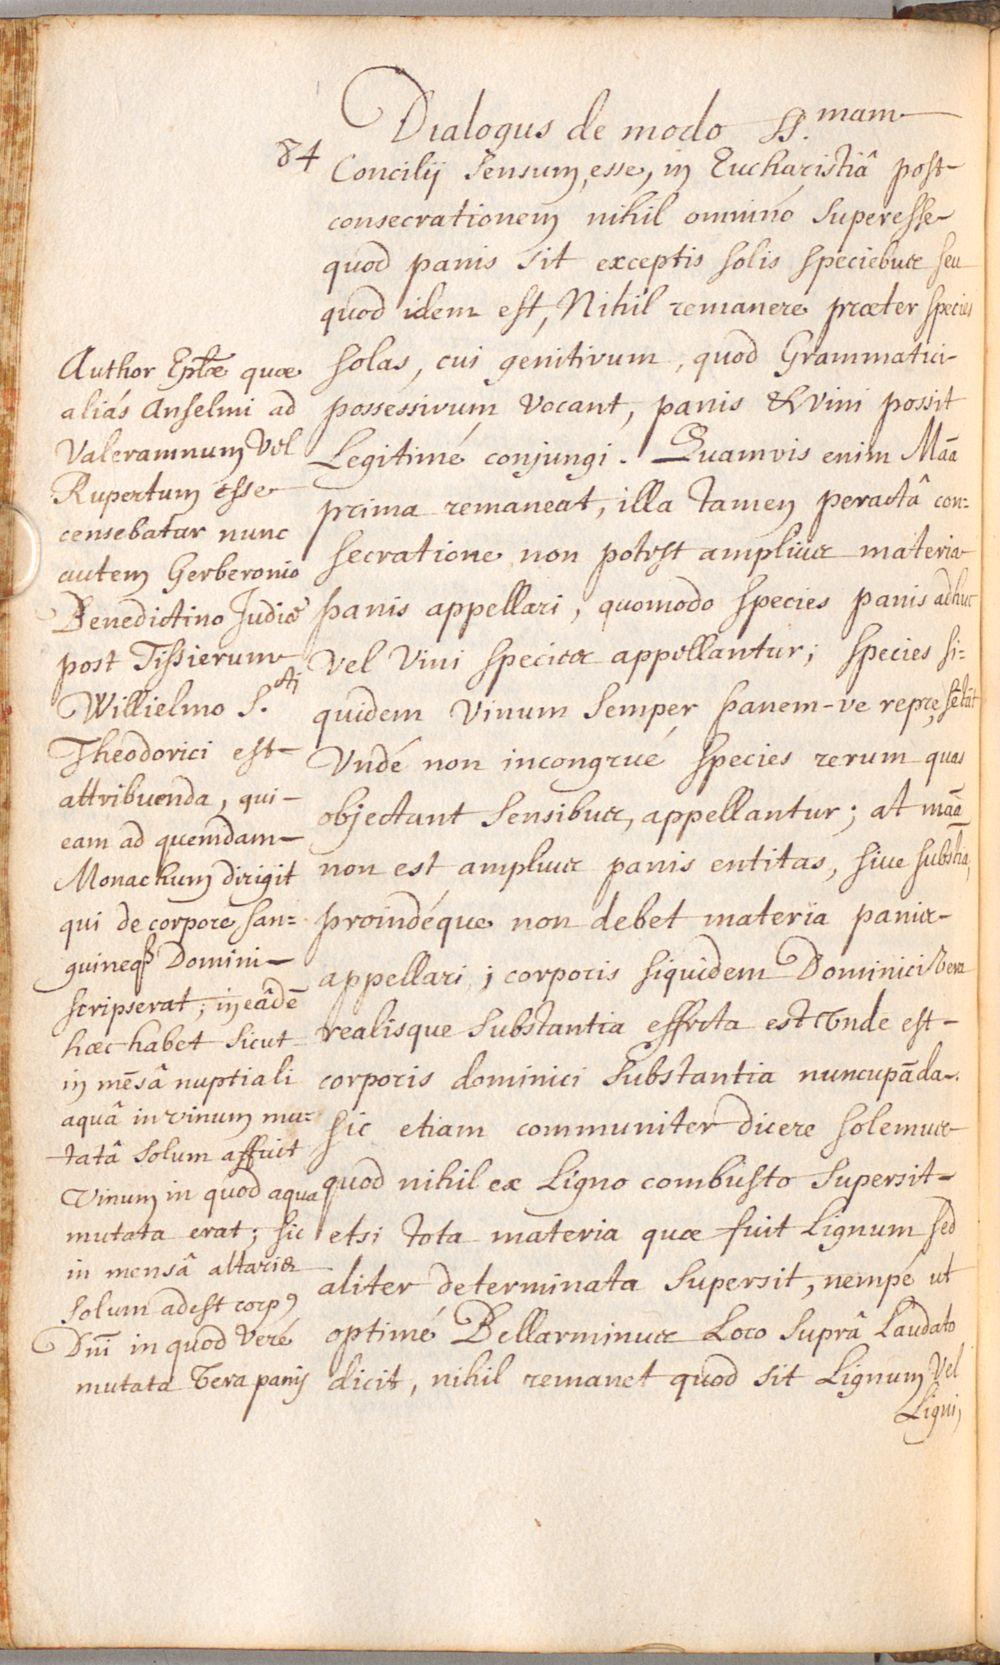 Dialogus de modo SS.mam
84
Concilij Sensum esse, in Eucharistiâ post
consecrationem nihil omnino Superesse
quod panis sit exceptis solis speciebus seu
quod idem est, Nihil remanere præter species
solas, cui genitivum, quod Grammatici
possessivum vocant, panis & vini possit
Legitimé conjungi. Quamvis enim Mãa
prima remaneat, illa tamen peractâ con:
secratione non potest amplius materia
panis appellari, quomodo species panis adhuc
vel Vini species appellantur; species si:
quidem Vinum Semper panem-ve repręsētāt
Vndé non incongrué species rerum quas
objectant Sensibus, appellantur; at mãa
non est amplius panis entitas, sive subst̃ia,
proindéque non debet materia panis
appellari; corporis siquidem Dominici Vera
realisque Substantia effecta est unde est
corporis dominici Substantia nuncupāda.
sic etiam communiter dicere solemus
quod nihil ex Ligno combusto Supersit
etsi tota materia quæ fuit Lignum sed
aliter determinata Supersit, nempé ut
optimé Bellarminus Loco Suprâ Laudato
dicit, nihil remanet quod sit Lignum Vel
Ligni,
Author Epłæ quæ
aliás Anselmi ad
Valeramnum Vel
Rupertum esse
censebatur nunc
autem Gerberonio
Benedictino Judice
post Tissierum
Willielmo S.ti
Theodorici est
attribuenda, qui
eam ad quemdam
Monachum dirigit
qui de corpore san:
guineqʒ Domini
scripserat; in eâdē
hæc habet Sicut
in mēsâ nuptiali
aquâ in vinum mu:
tatâ Solum affuit
Vinum in quod aqua
mutata erat; sic
in mensâ altaris
Solum adest corpꝰ
Dnī in quod Veré
mutata Vera panis